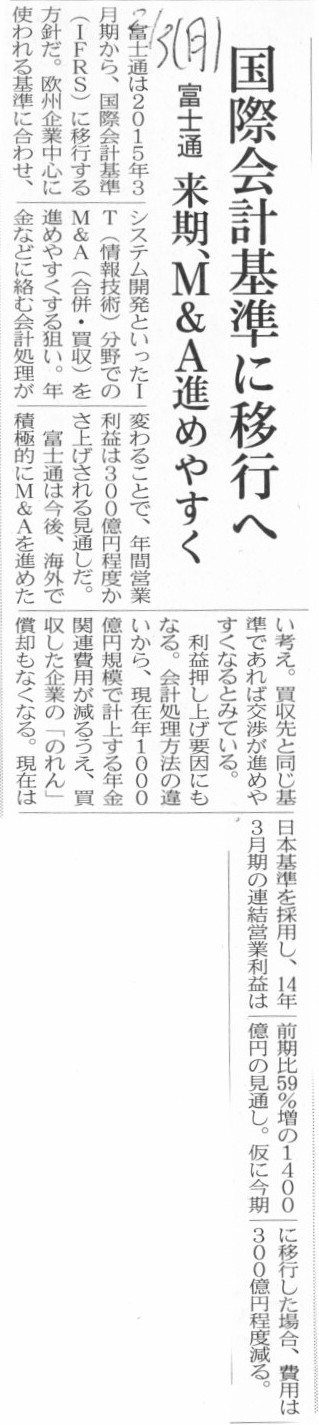 2/3(月)
国際会計基準に移行へ
富士通 来期、M&A進めやすく
富士通は2015年3
月期から、国際会計基準
(IFRS)に移行する
方針だ。欧州企業中心に
使われる基準に合わせ、
システム開発といったI
T(情報技術)分野での
M&A(合併・買収)を
進めやすくする狙い。年
金などに絡む会計処理が
変わることで、年間営業
利益は300億円程度か
さ上げされる見通しだ。
富士通は今後、海外で
積極的にM&Aを進めた
い考え。買収先と同じ基
準であれば交渉が進めや
すくなるとみている。
利益押し上げ要因にも
なる。会計処理方法の違
いから、現在年1000
億円規模で計上する年金
関連費用が減るうえ、買
収した企業の「のれん」
償却もなくなる。現在は
日本基準を採用し、14年
3月期の連結営業利益は
前期比59%増の1400
億円の見通し。仮に今期
に移行した場合、費用は
300億円程度減る。